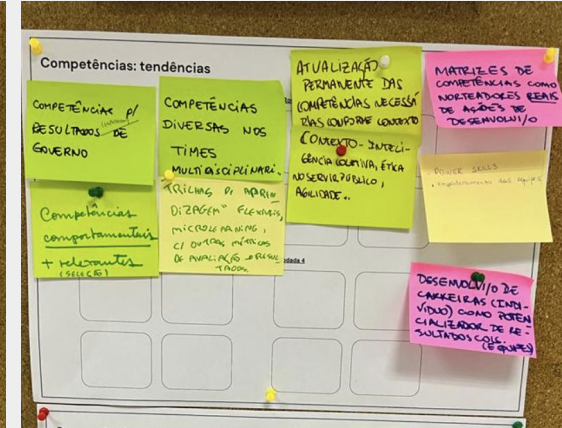 Competências: tendências
COMPETÊNCIAS P/
RESULTADOS DE
GOVERNO
Competências
comportamentais
+ relevantes
(SELEÇÃO)
COMPETENCIAS
DIVERSAS NOS
TIMES
MULTIDISCIPLINARI.
TRILHAS DE APREN
DIZAGEM FLEXIVEIS,
MICROLEARNING,
C/ OUTRAS MÉTRICAS
DE AVALIAÇÃO RESUL
TADOS.
ATUALIZAÇÃO
PERMANENTE DAS
COMPETÊNCIAS NECESSÁ
RIAS CONFORME CONTEXTO
CONTEXTO - INTELI-
GÊNCIA COLETIVA, ÉTICA
NO SERVIÇO PÚBLICO,
AGILIDADE...
MATRIZES DE
COMPETÊNCIAS COMO
NORTEADORES REAIS
DE AÇÕES DE
DESENVOLVI/O
. POWER SKILLS
. das equipes
odada 4
DESENVOLVI/O DE
CARREIRAS (INDI-
VÍDUO) COMO POTEN
CIALIZADOR DE RE-
SULTADOS COLE.
(EQUIPES)